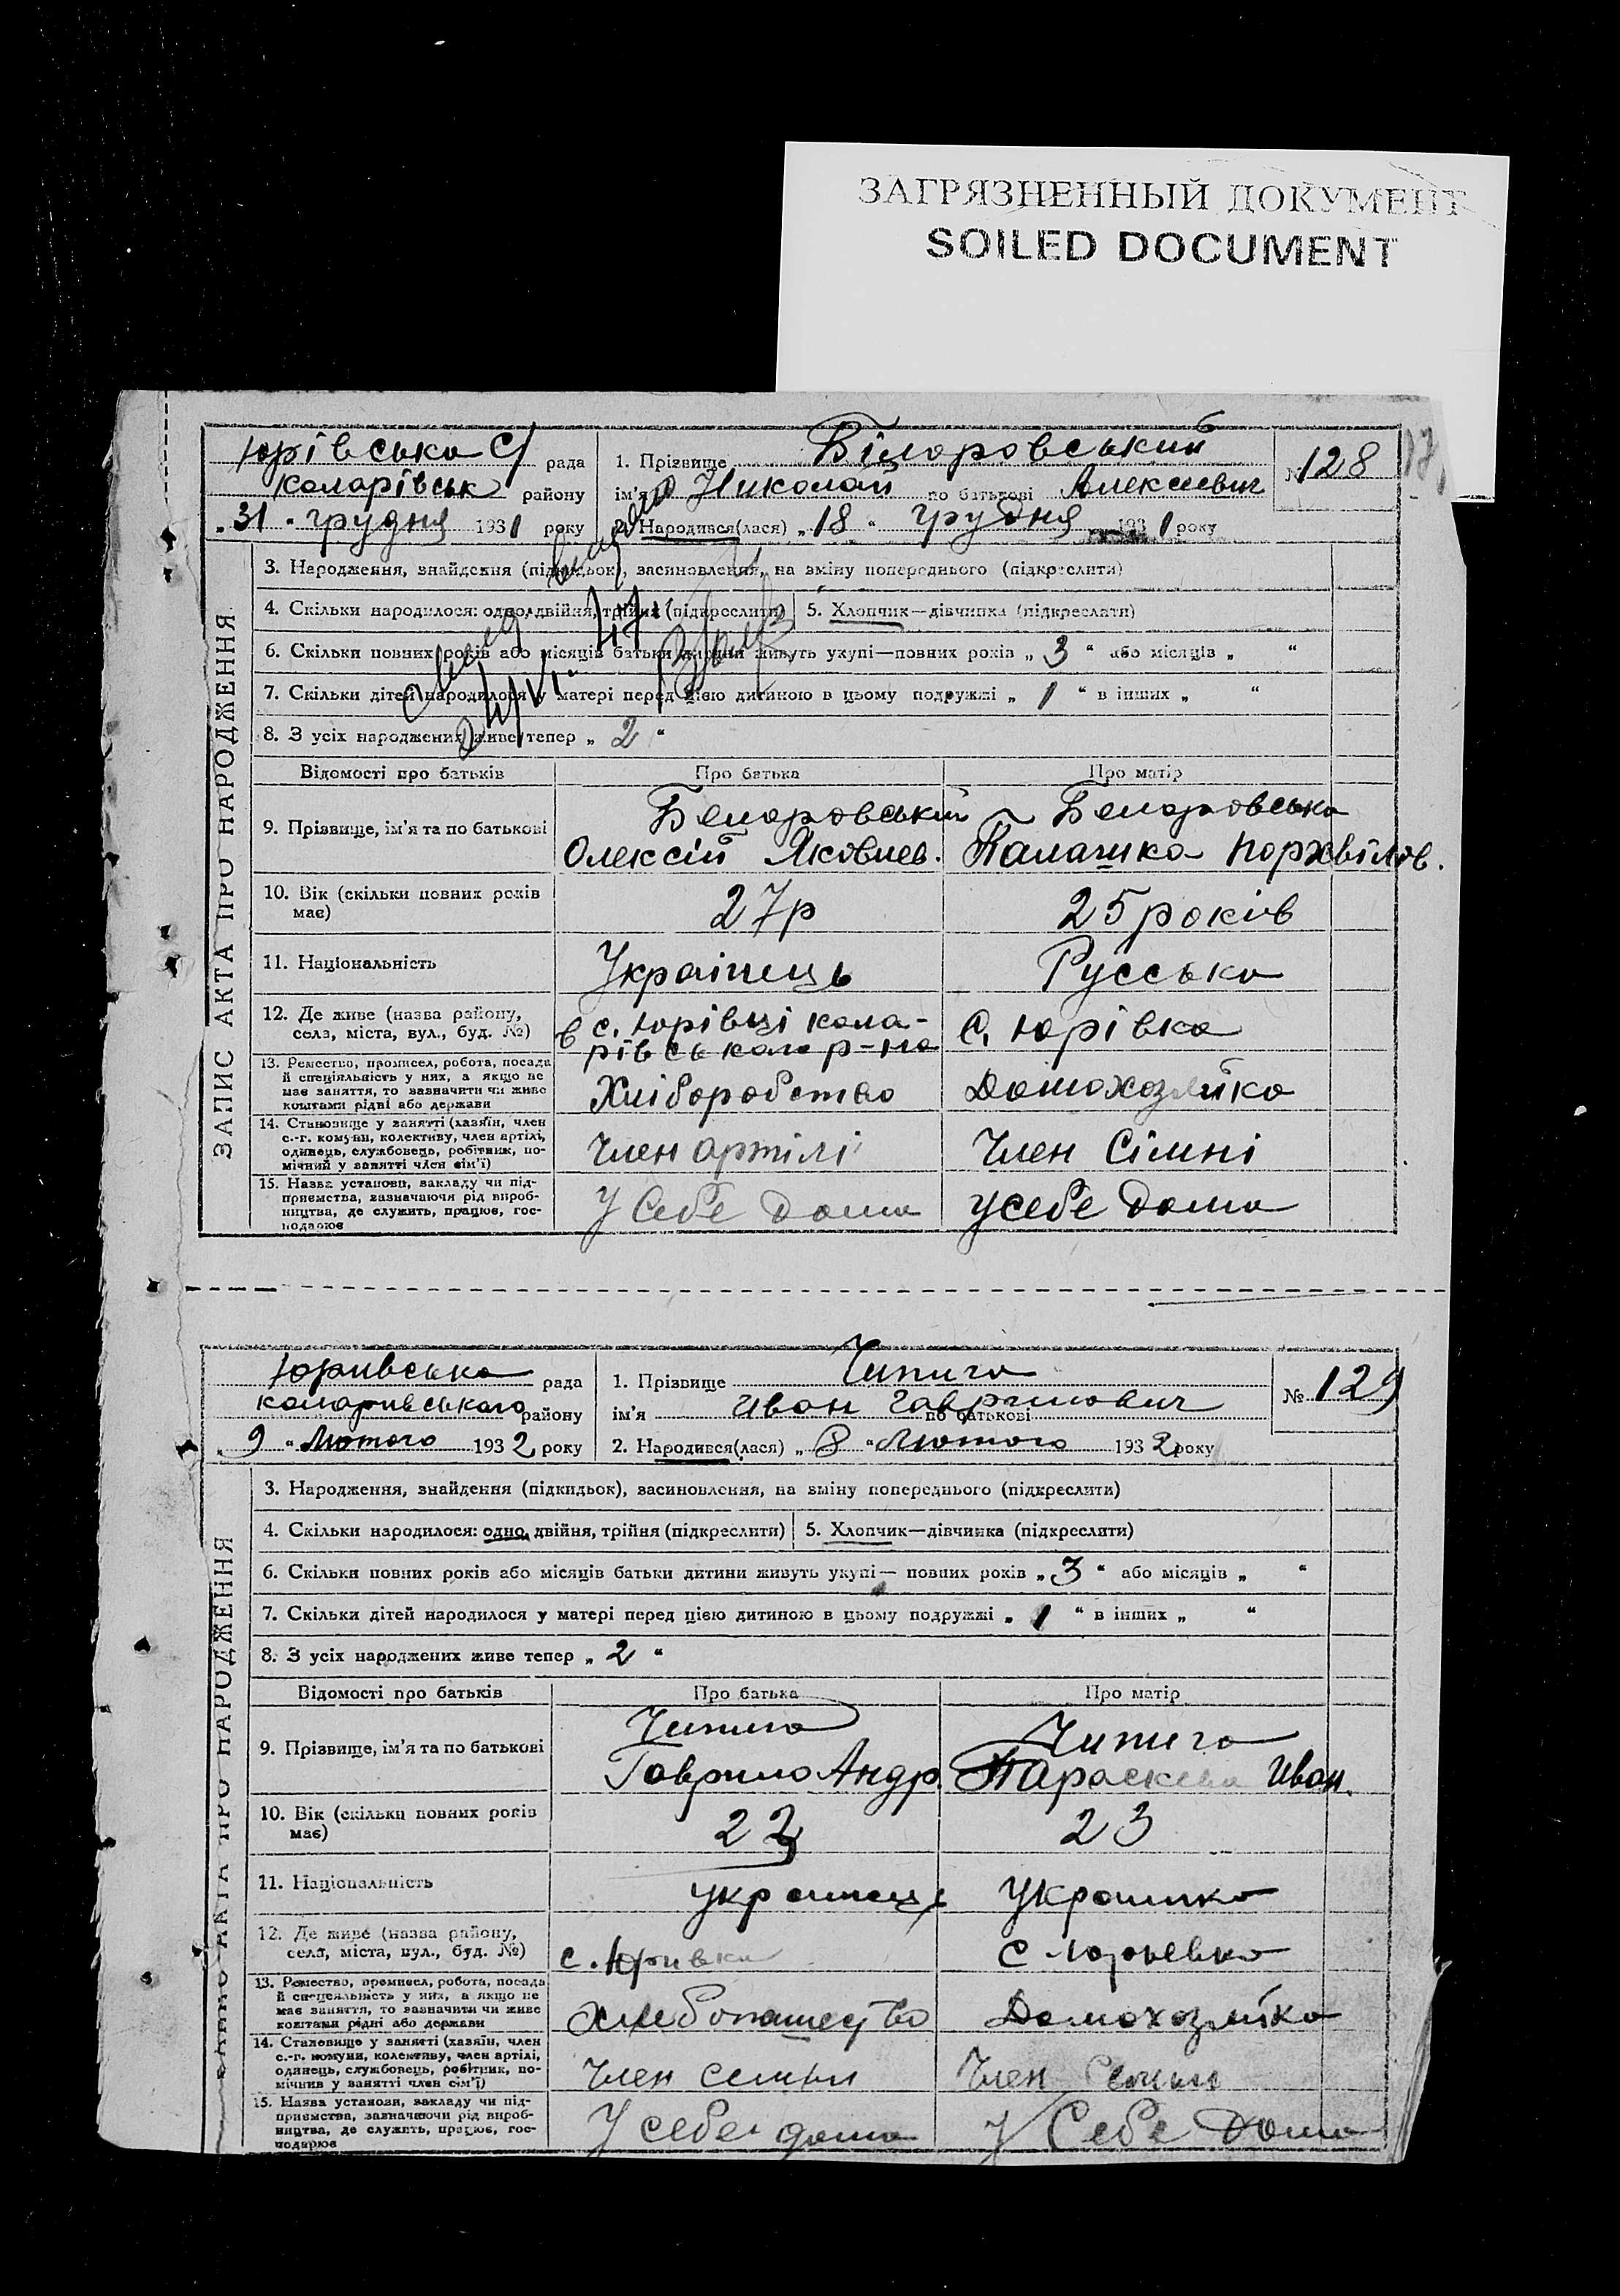 ЗАГРЯЗНЕННЫЙ ДОКУМЕНТ
SOILED DOCUMENT
Юрівська С/ рада
Коларівськ району
„31“ грудня 1931 року
1. Прізвище Біларовський
ім'я Николай по батькові Алексеевич
2. Народився(лася) „18“ грудня 1931 року
№ 128
ЗАПИС АКТА ПРО НАРОДЖЕННЯ
3. Народження, знайдення (підкидьок), засиновлення, на зміну попереднього (підкреслити)
4. Скільки народилося: одно, двійня, трійня (підкреслити) 5. Хлопчик—дівчинка (підкреслити)
6. Скільки повних років або місяців батьки дитини живуть укупі—повних років „3“ або місяців „ “
7. Скільки дітей народилося у матері перед цією дитиною в цьому подружжі „1“ в інших „ “
8. З усіх народжених живе тепер „2“
Відомості про батьків Про батька Про матір
9. Прізвище, ім'я та по батькові
Беларовський Беларовська
Олексій Яковлев. Палашка
10. Вік (скільки повних років має)
27р 25 років
11. Національність
Українець Русська
12. Де живе (назва району, села, міста, вул., буд. №)
в с. Юрівці Кола- с. Юрівка
рівського р-на
13. Ремество, промисел, робота, посада
й спеціяльність у них, а якщо не
має заняття, то зазначити чи живе
коштами рідні або держави
Хліборобство Домохозяйка
14. Становище у занятті (хазяїн, член
с.-г. комуни, колективу, член артілі,
одинець, службовець, робітник, по-
мічний у занятті член сім'ї)
Член артілі Член Сімні
15. Назва установи, закладу чи під-
приємства, зазначаючи рід вироб-
ництва, де служить, працює, гос-
подарює
У Себе дома У себе дома
Юривська рада
Коларивського району
„9“ Лютого 1932 року
1. Прізвище Чипига
ім'я Иван по батькові Гаврилович
2. Народився(лася) „8“ Лютого 1932 року
№ 129
ЗАПИС АКТА ПРО НАРОДЖЕННЯ
3. Народження, знайдення (підкидьок), засиновлення, на зміну попереднього (підкреслити)
4. Скільки народилося: одно, двійня, трійня (підкреслити) 5. Хлопчик—дівчинка (підкреслити)
6. Скільки повних років або місяців батьки дитини живуть укупі— повних років „3“ або місяців „ “
7. Скільки дітей народилося у матері перед цією дитиною в цьому подружжі „1“ в інших „ “
8. З усіх народжених живе тепер „2“
Відомості про батьків Про батька Про матір
9. Прізвище, ім'я та по батькові
Чипига Чипига
Гаврило Андр. Параскева Иван.
10. Вік (скільки повних років має)
23 23
11. Національність
украинець Украинка
12. Де живе (назва району, села, міста, вул., буд. №)
с. Юривка с. Юрьевка
13. Ремество, промисел, робота, посада
й спеціяльність у них, а якщо не
має заняття, то зазначити чи живе
коштами рідні або держави
Хлебопашество Домохозяйка
14. Становище у занятті (хазяїн, член
с.-г. комуни, колективу, член артілі,
одинець, службовець, робітник, по-
мічник у занятті член сім'ї)
Член семьи Член Семьи
15. Назва установи, закладу чи під-
приємства, зазначаючи рід вироб-
ництва, де служить, працює, гос-
подарює
У себе дома У Себе Дома